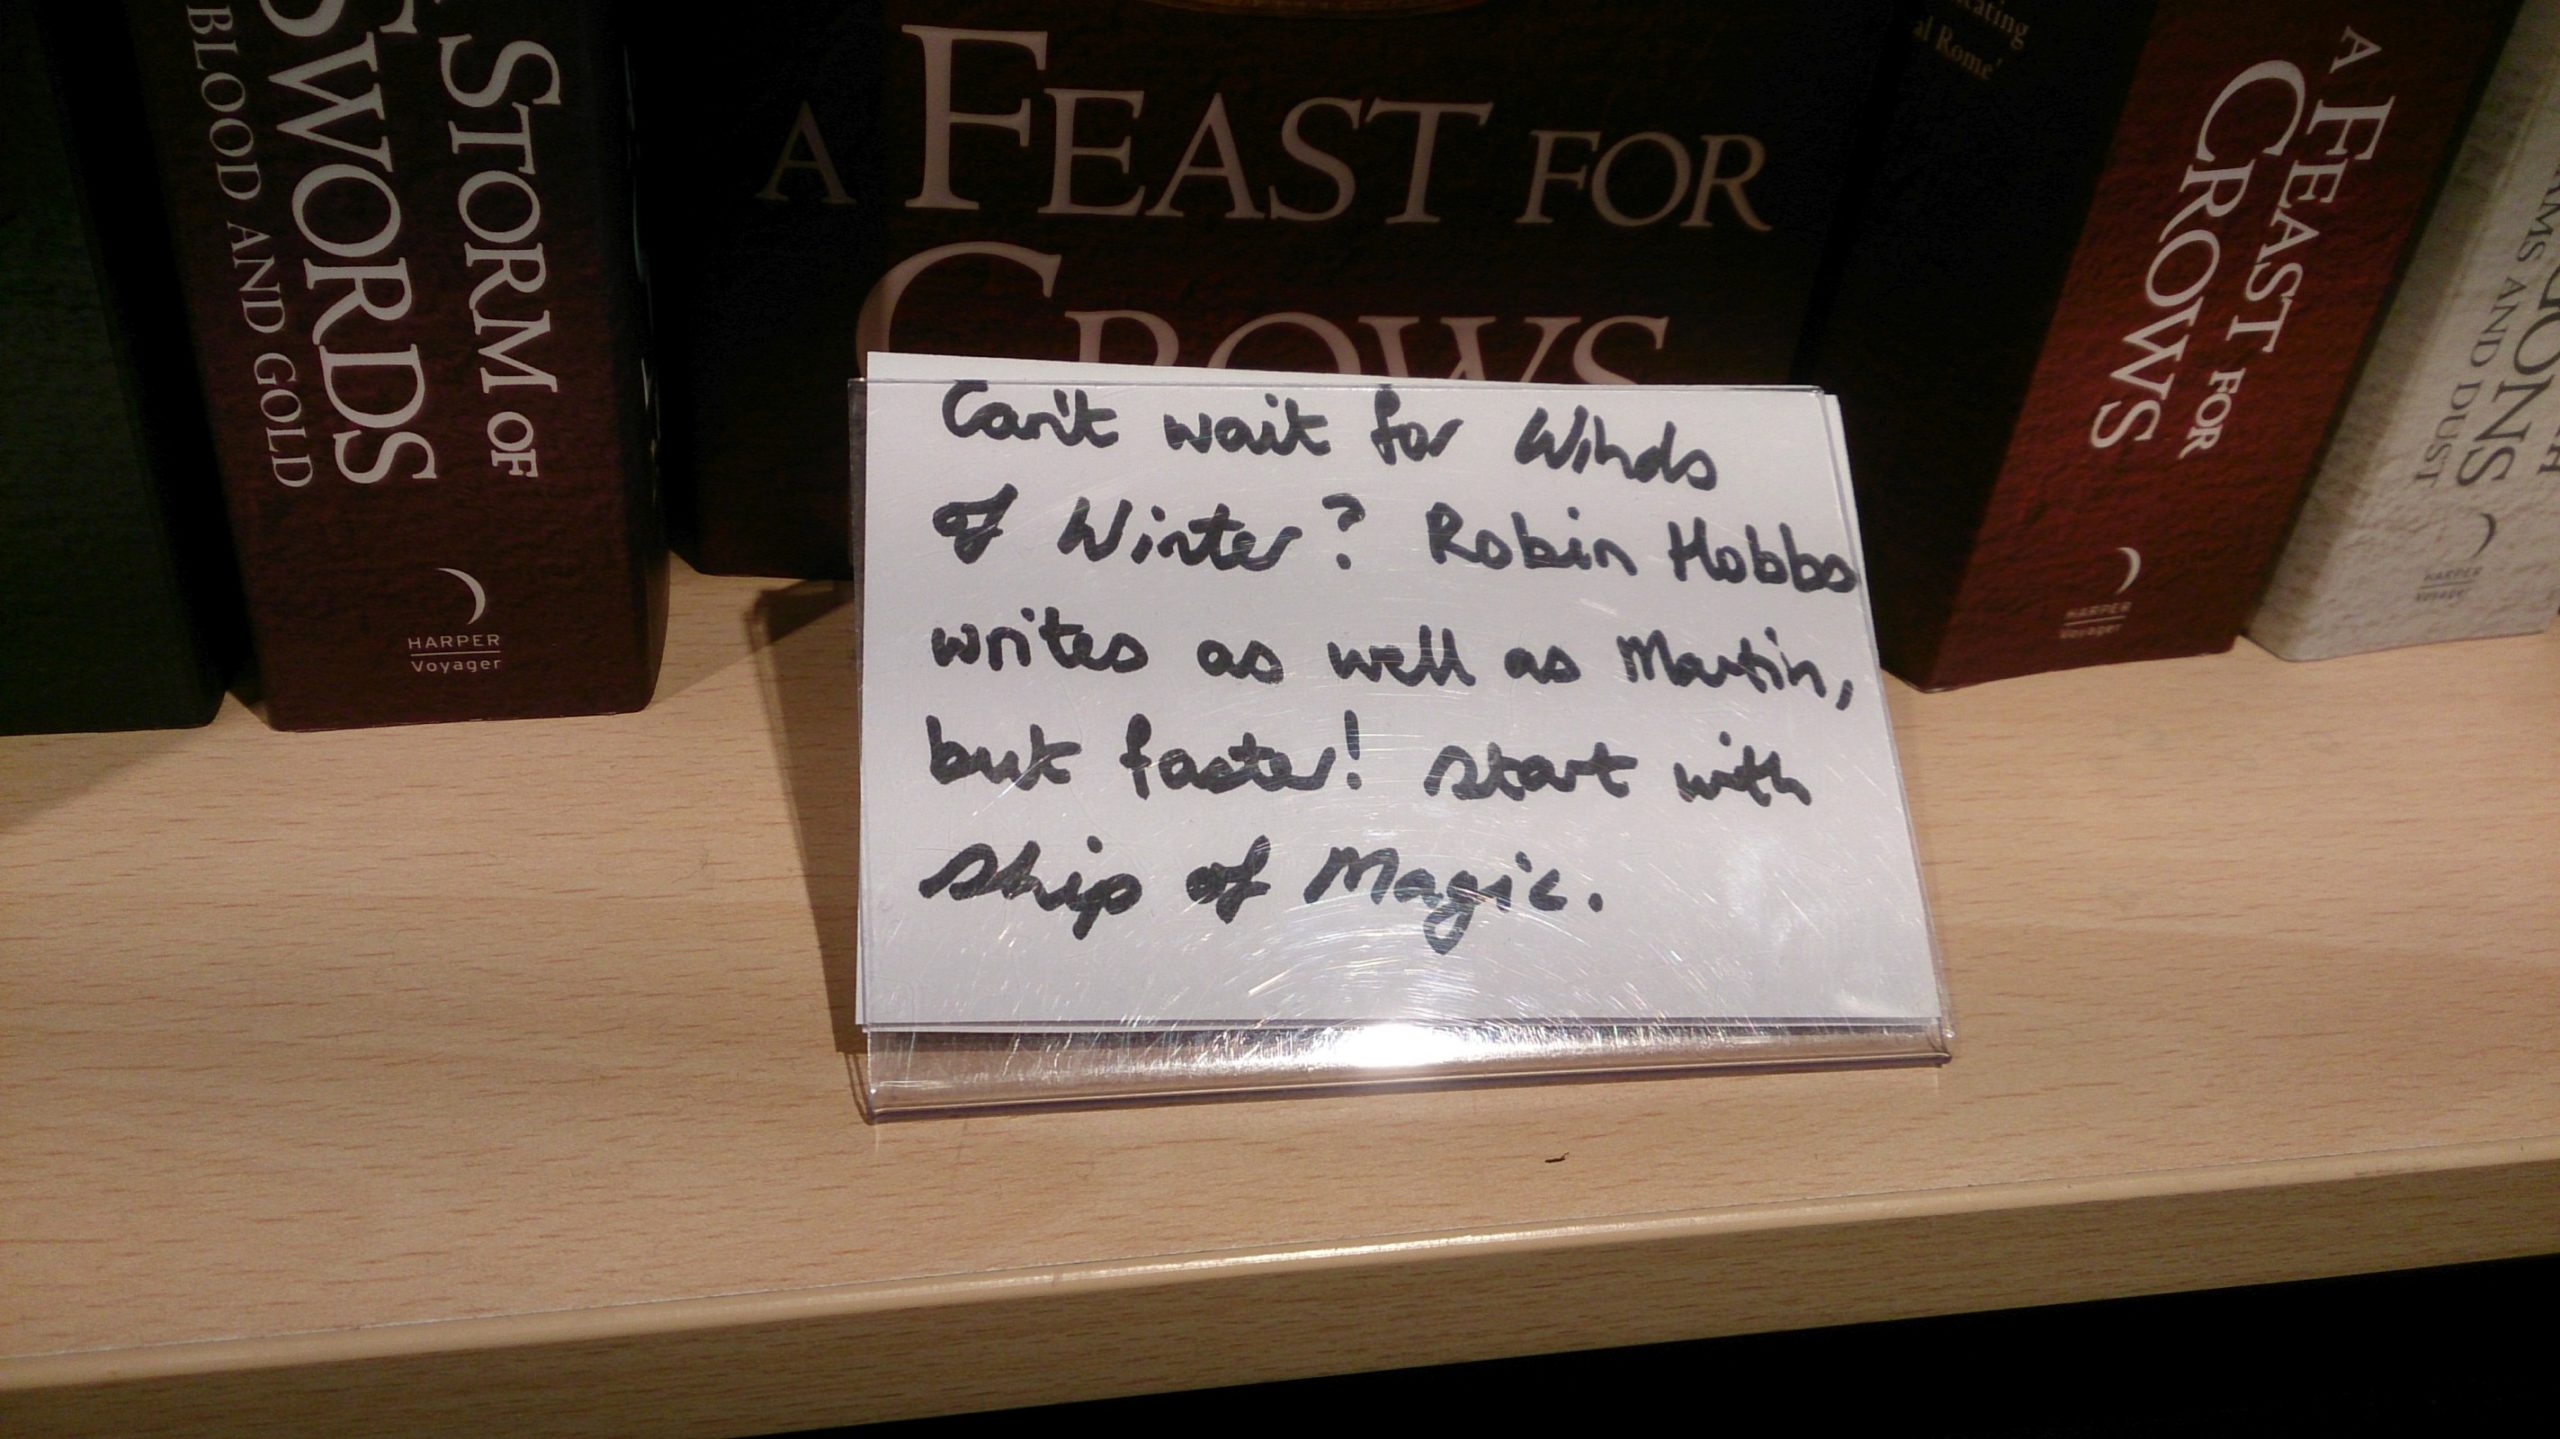 STORM OF
SWORDS
BLOOD AND GOLD
HARPER
Voyager
A FEAST FOR
CROWS
Can't wait for Winds
of Winter? Robin Hobbs
writes as well as Martin,
but faster! Start with
Ship of Magic.
al Rome'
A FEAST FOR
CROWS
HARPER
Voyager
AND DUST
HARPER
Voyager